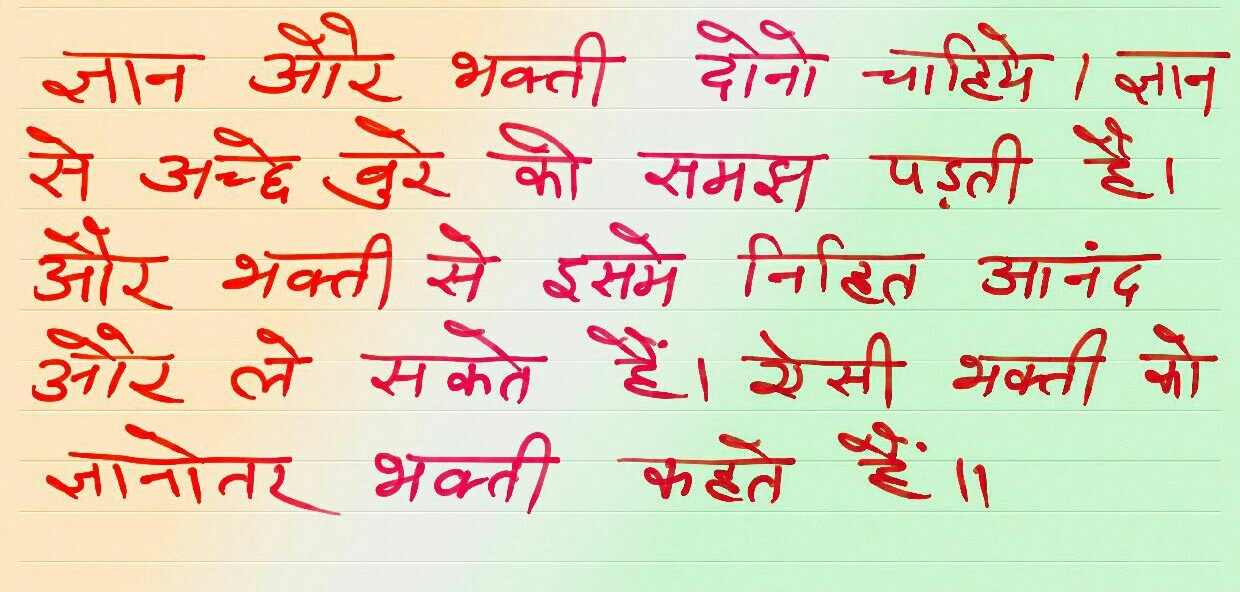 ज्ञान और भक्ती दोनो चाहिये । ज्ञान
से अच्छे बुरे की समझ पड़ती है।
और भक्ती से इसमे निहित आनंद
और ले सकते हैं। ऐसी भक्ती को
ज्ञानोतर भक्ती कहते हैं ॥